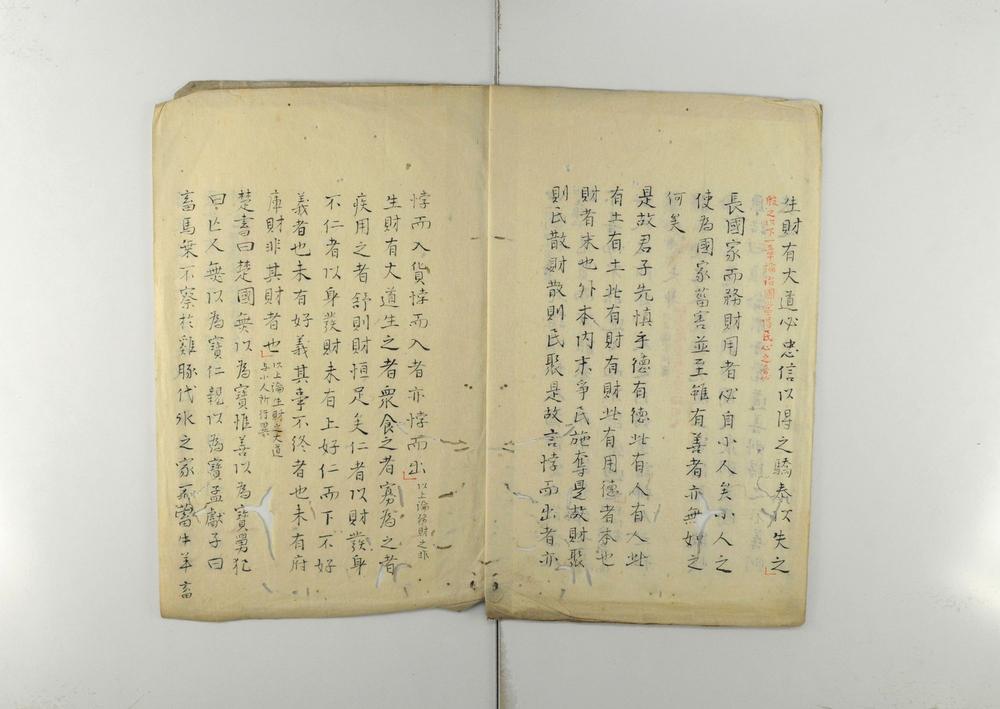 生財有大道必忠信以得之驕泰以失之
長國家而務財用者必自小人矣小人之
使為國家菑害並至雖有善者亦無如之
何矣
是故君子先慎乎德有德此有人有人此
有土有土此有財有財此有用德者本也
財者末也外本內末爭民施奪是故財聚
則民散財散則民聚是故言悖而出者亦
悖而入貨悖而入者亦悖而出 以上論務財之非
生財有大道生之者衆食之者寡為之者
疾用之者舒則財恒足矣仁者以財發身
不仁者以身發財未有上好仁而下不好
義者也未有好義其事不終者也未有府
庫財非其財者也 以上論生財之大道
与小人所行異
楚書曰楚國無以為寶惟善以為寶舅犯
曰亡人無以為寶仁親以為寶孟獻子曰
畜馬乗不察於雞豚伐氷之家不畜牛羊畜